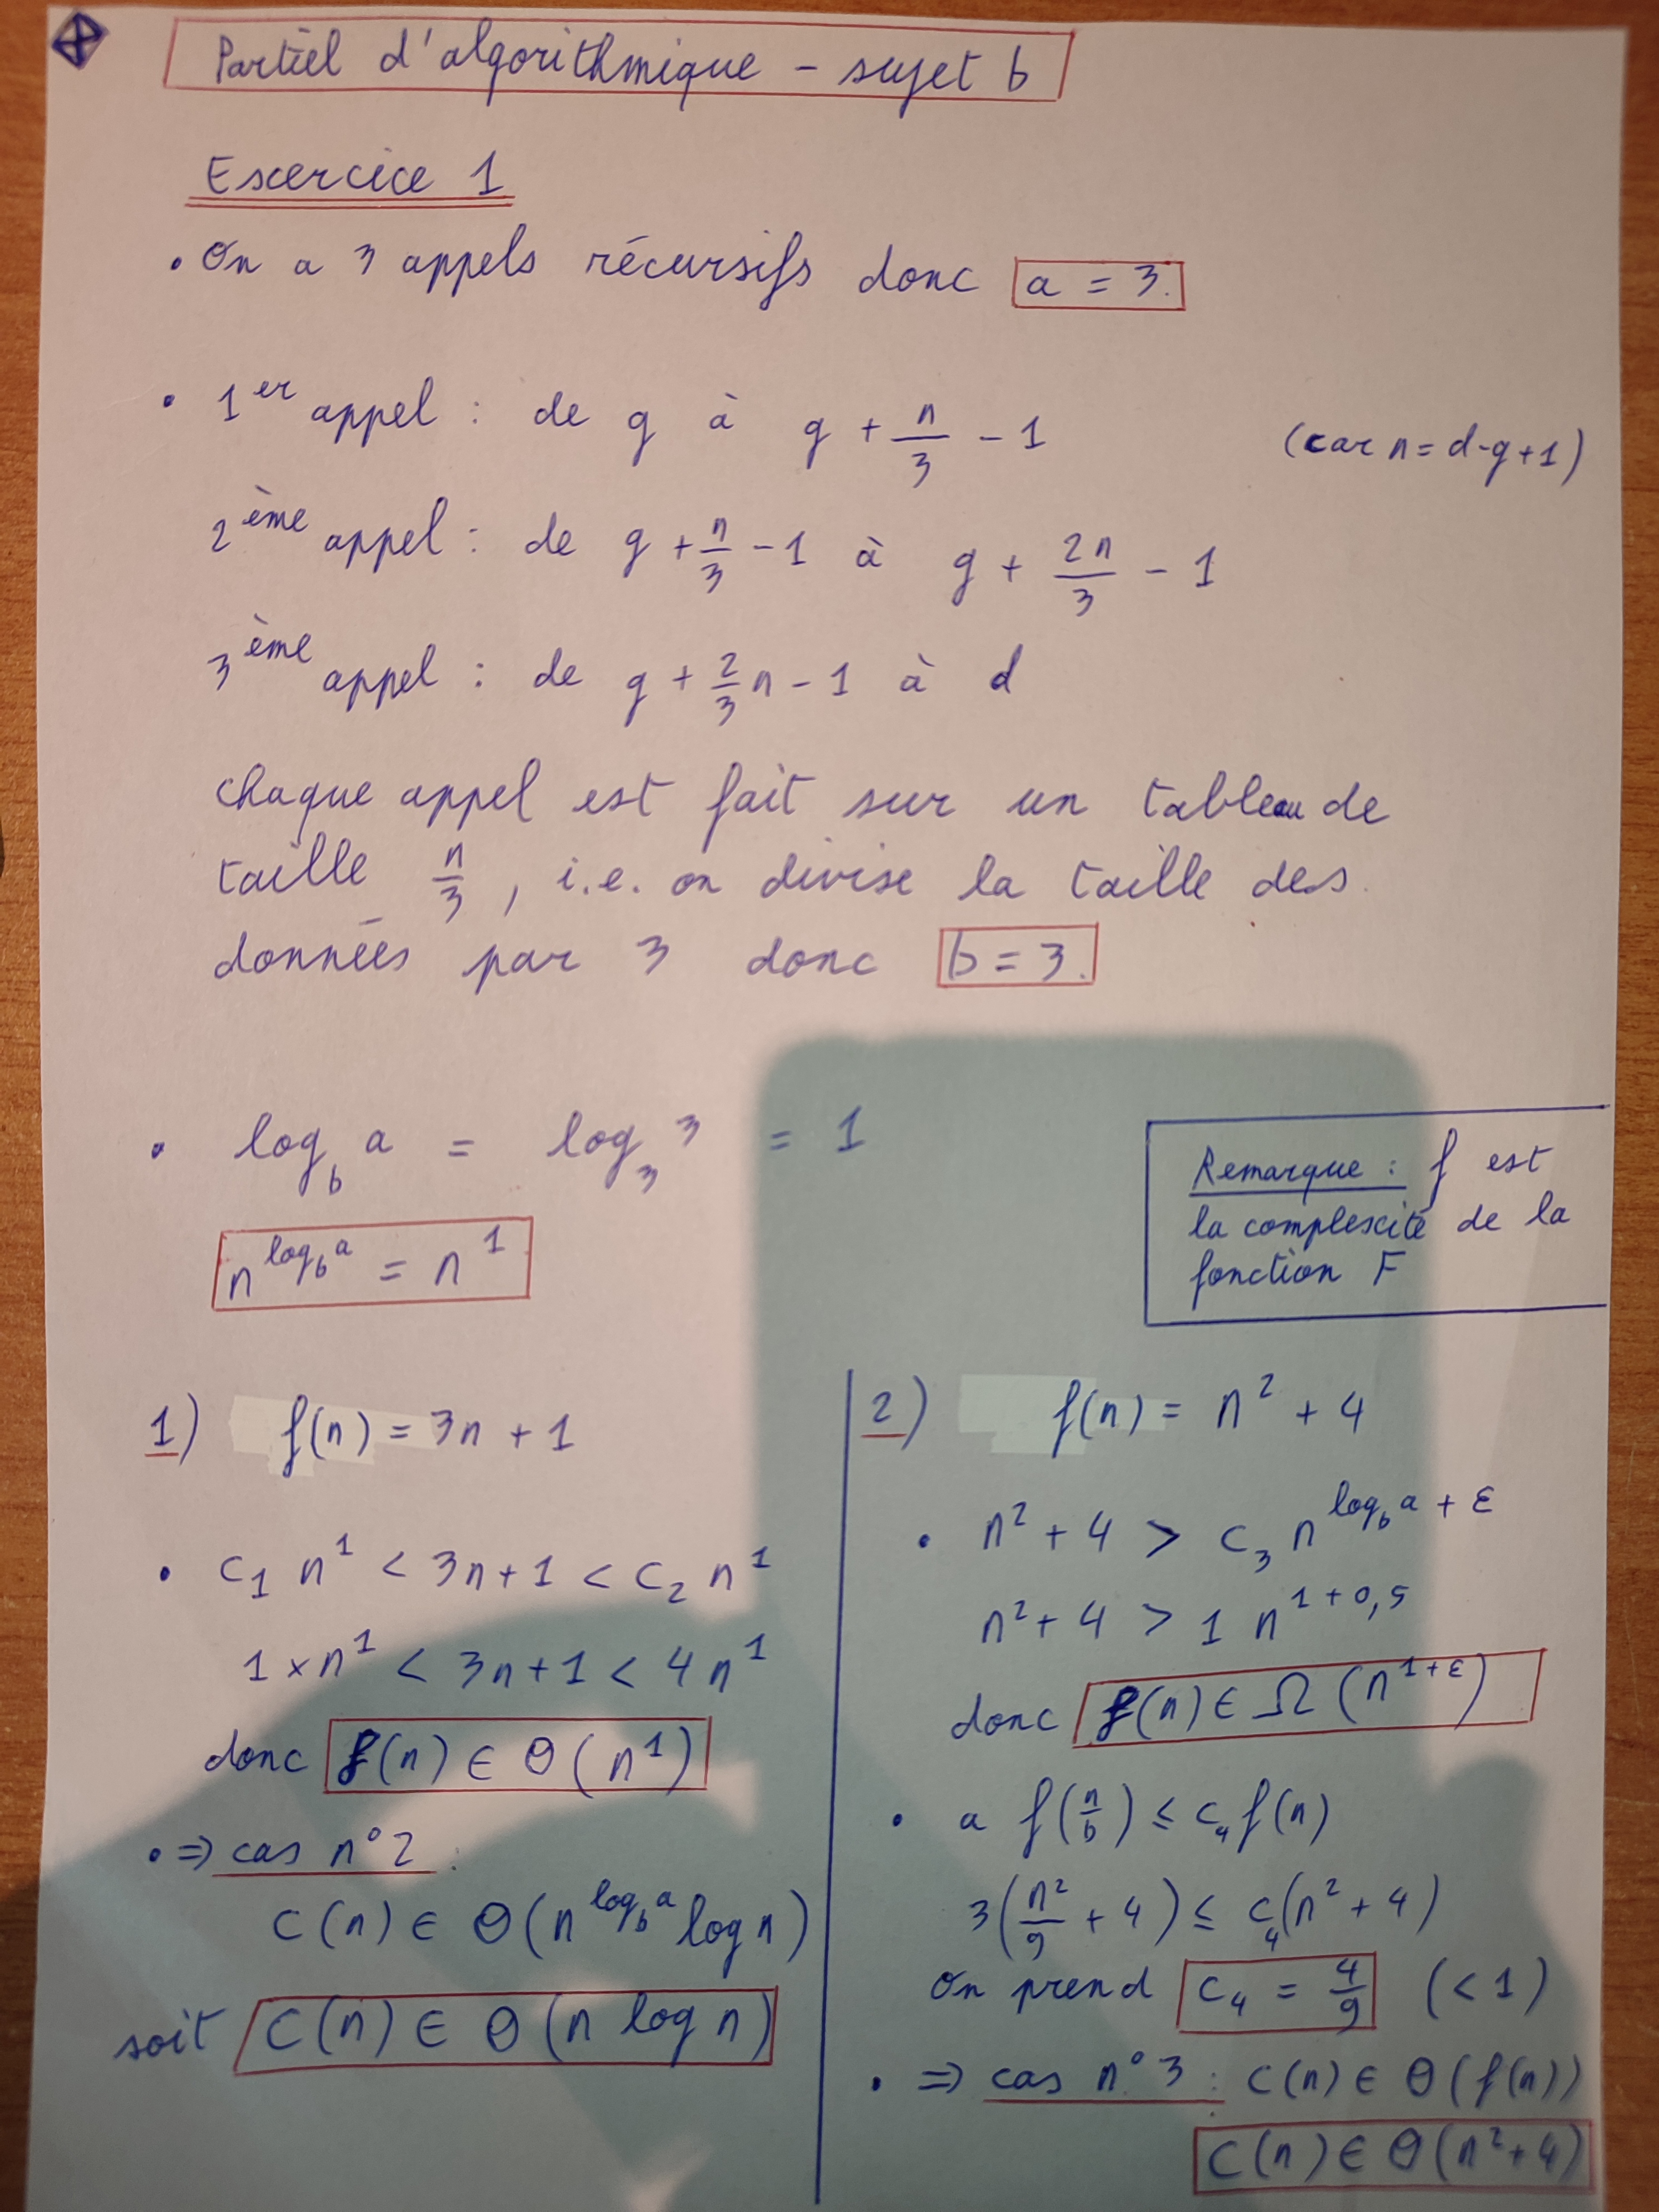 Partiel d'algorithmique - sujet b
Exercice 1
• On a 3 appels récursifs donc a = 3.
• 1er appel : de g à g + n/3 - 1 (car n = d-g+1)
2ème appel : de g + n/3 - 1 à g + 2n/3 - 1
3ème appel : de g + 2/3 n - 1 à d
chaque appel est fait sur un tableau de
taille n/3, i.e. on divise la taille des
données par 3 donc b = 3.
• log_b a = log_3 3 = 1
n^(log_b a) = n^1
Remarque : f est
la complexité de la
fonction F
1) f(n) = 3n + 1
• c₁ n^1 < 3n+1 < c₂ n^1
1×n^1 < 3n+1 < 4n^1
donc f(n) ∈ Θ(n^1)
• ⇒ cas n°2 :
C(n) ∈ Θ(n^(log_b a) log n)
soit C(n) ∈ Θ(n log n)
2) f(n) = n² + 4
• n² + 4 > c₃ n^(log_b a + ε)
n² + 4 > 1 n^(1+0,5)
donc f(n) ∈ Ω(n^(1+ε))
• a f(n/b) ≤ c₄ f(n)
3(n²/9 + 4) ≤ c₄(n² + 4)
On prend c₄ = 4/9 (<1)
• ⇒ cas n°3 : C(n) ∈ Θ(f(n))
C(n) ∈ Θ(n²+4)